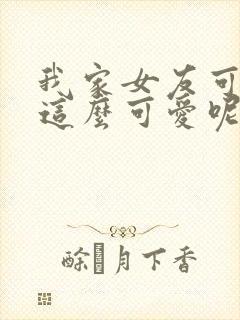 我家女友可
這麼可愛呢
酴 月下香